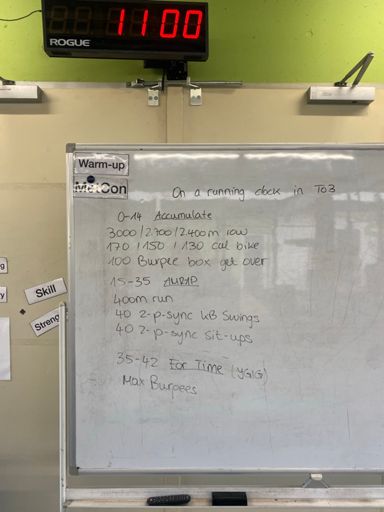 11:00
ROGUE
Warm-up
MetCon
On a running clock in To3
0-14 Accumulate
3000/2.700/2.400m row
170 / 150 / 130 cal bike
100 Burpee box get over
15-35 AMRAP
400m run
40 2-p-sync KB Swings
40 2-p-sync sit-ups
35-42 For Time (YGIG)
Max Burpees
Skill
Streng
g
y